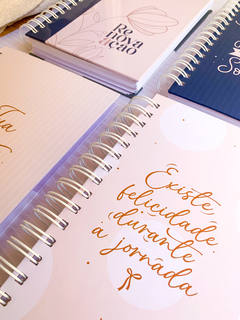 Re
nova
ção
Existe
felicidade
durante
a jornada